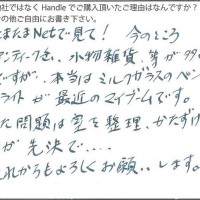 社ではなく Handle でご購入頂いたご理由はなんですか？
の他ご自由にお書き下さい。
またまNetで見て! 今のところ
アンティーク、小物雑貨、等が99
ですが、本当はミルクガラスのペン
ライトが最近のマイブームです。
た問題は空を整理、かたずけ
が先決で‥‥
れからもよろしくお願‥します。